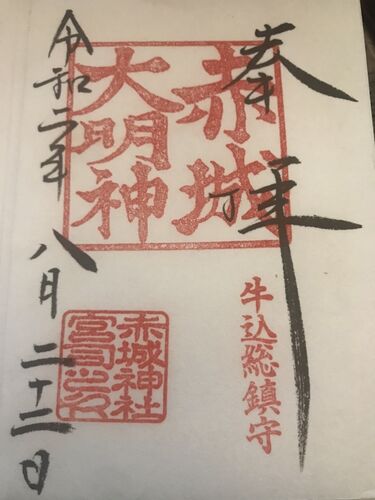 奉拝
赤城
大明神
牛込総鎮守
赤城神社
宮司之印
令和二年八月二十二日